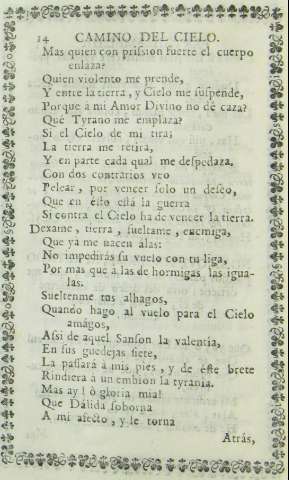 14 CAMINO DEL CIELO.
Mas quien con prission fuerte el cuerpo
enlaza?
Quien violento me prende,
Y entre la tierra, y Cielo me suspende,
Porque à mi Amor Divino no dè caza?
Què Tyrano me emplaza?
Si el Cielo de mi tira;
La tierra me retira,
Y en parte cada qual me despedaza,
Con dos contrarios veo
Pelear, por vencer solo un deseo,
Que en esso està la guerra
Si contra el Cielo ha de vencer la tierra.
Dexame, tierra, sueltame, enemiga,
Que ya me nacen alas:
No impediràs su vuelo con tu liga,
Por mas que à las de hormigas las igua-
las.
Sueltenme tus alhagos,
Quando hago al vuelo para el Cielo
amagos,
Assi de aquel Sanson la valentia,
En sus guedejas siete,
La passarà à mis pies, y de èste brete
Rindiera à un embion la tyrania.
Mas ay! ò gloria mia!
Que Dalida soborna
A mi afecto, y le torna
Atràs,